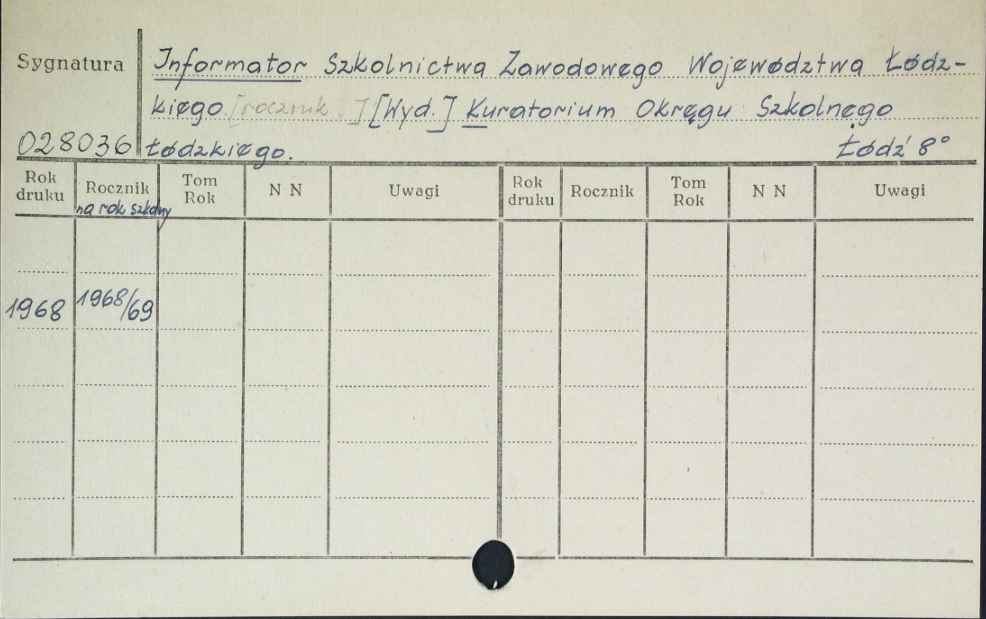 Sygnatura
Informator Szkolnictwa Zawodowego Województwa Łódz-
kiego [rocznik .] [Wyd.] Kuratorium Okręgu Szkolnego
028036 Łódzkiego. Łódź 8°
Rok druku Rocznik Tom Rok N N Uwagi Rok druku Rocznik Tom Rok N N Uwagi
na rok szkolny
1968 1968/69